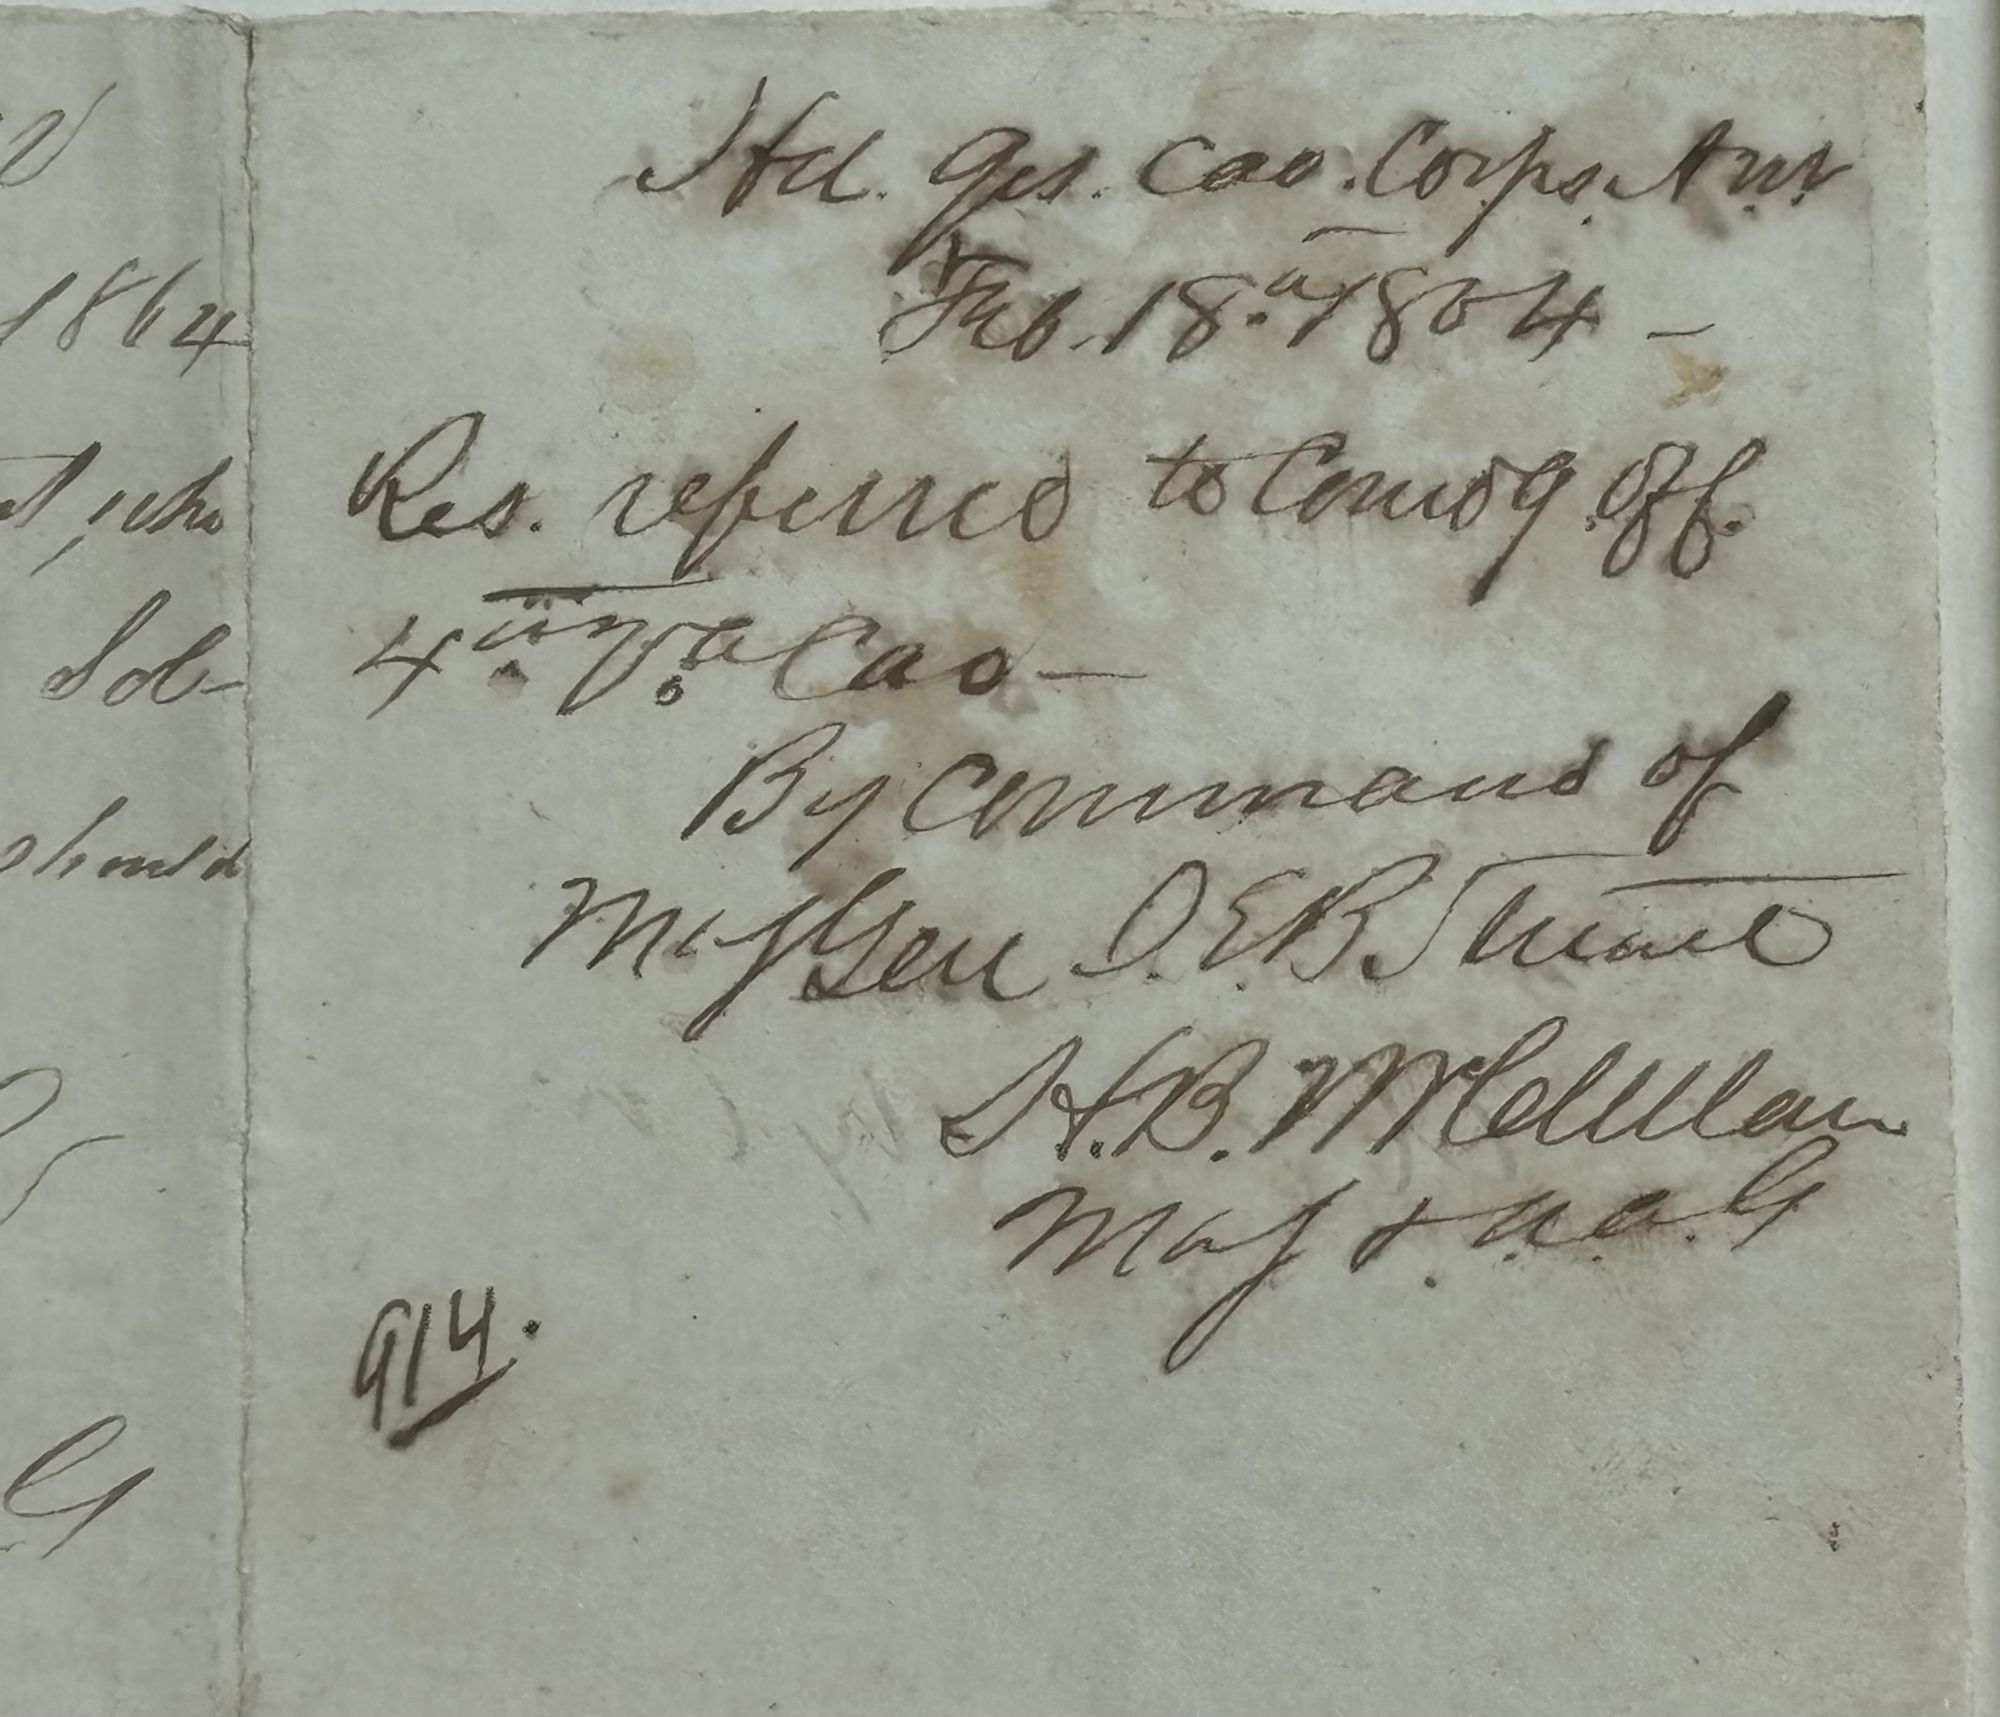 1864
who
Sol-
should
G
Hd. Qrs. Cav. Corps. A.N.V.
Feb. 18th 1864 -
Res. referred to Comdg. Off.
4th Va Cav -
By Command of
Maj Gen J. E. B. Stuart
H. B. McClellan
Maj & A. A. G
914.